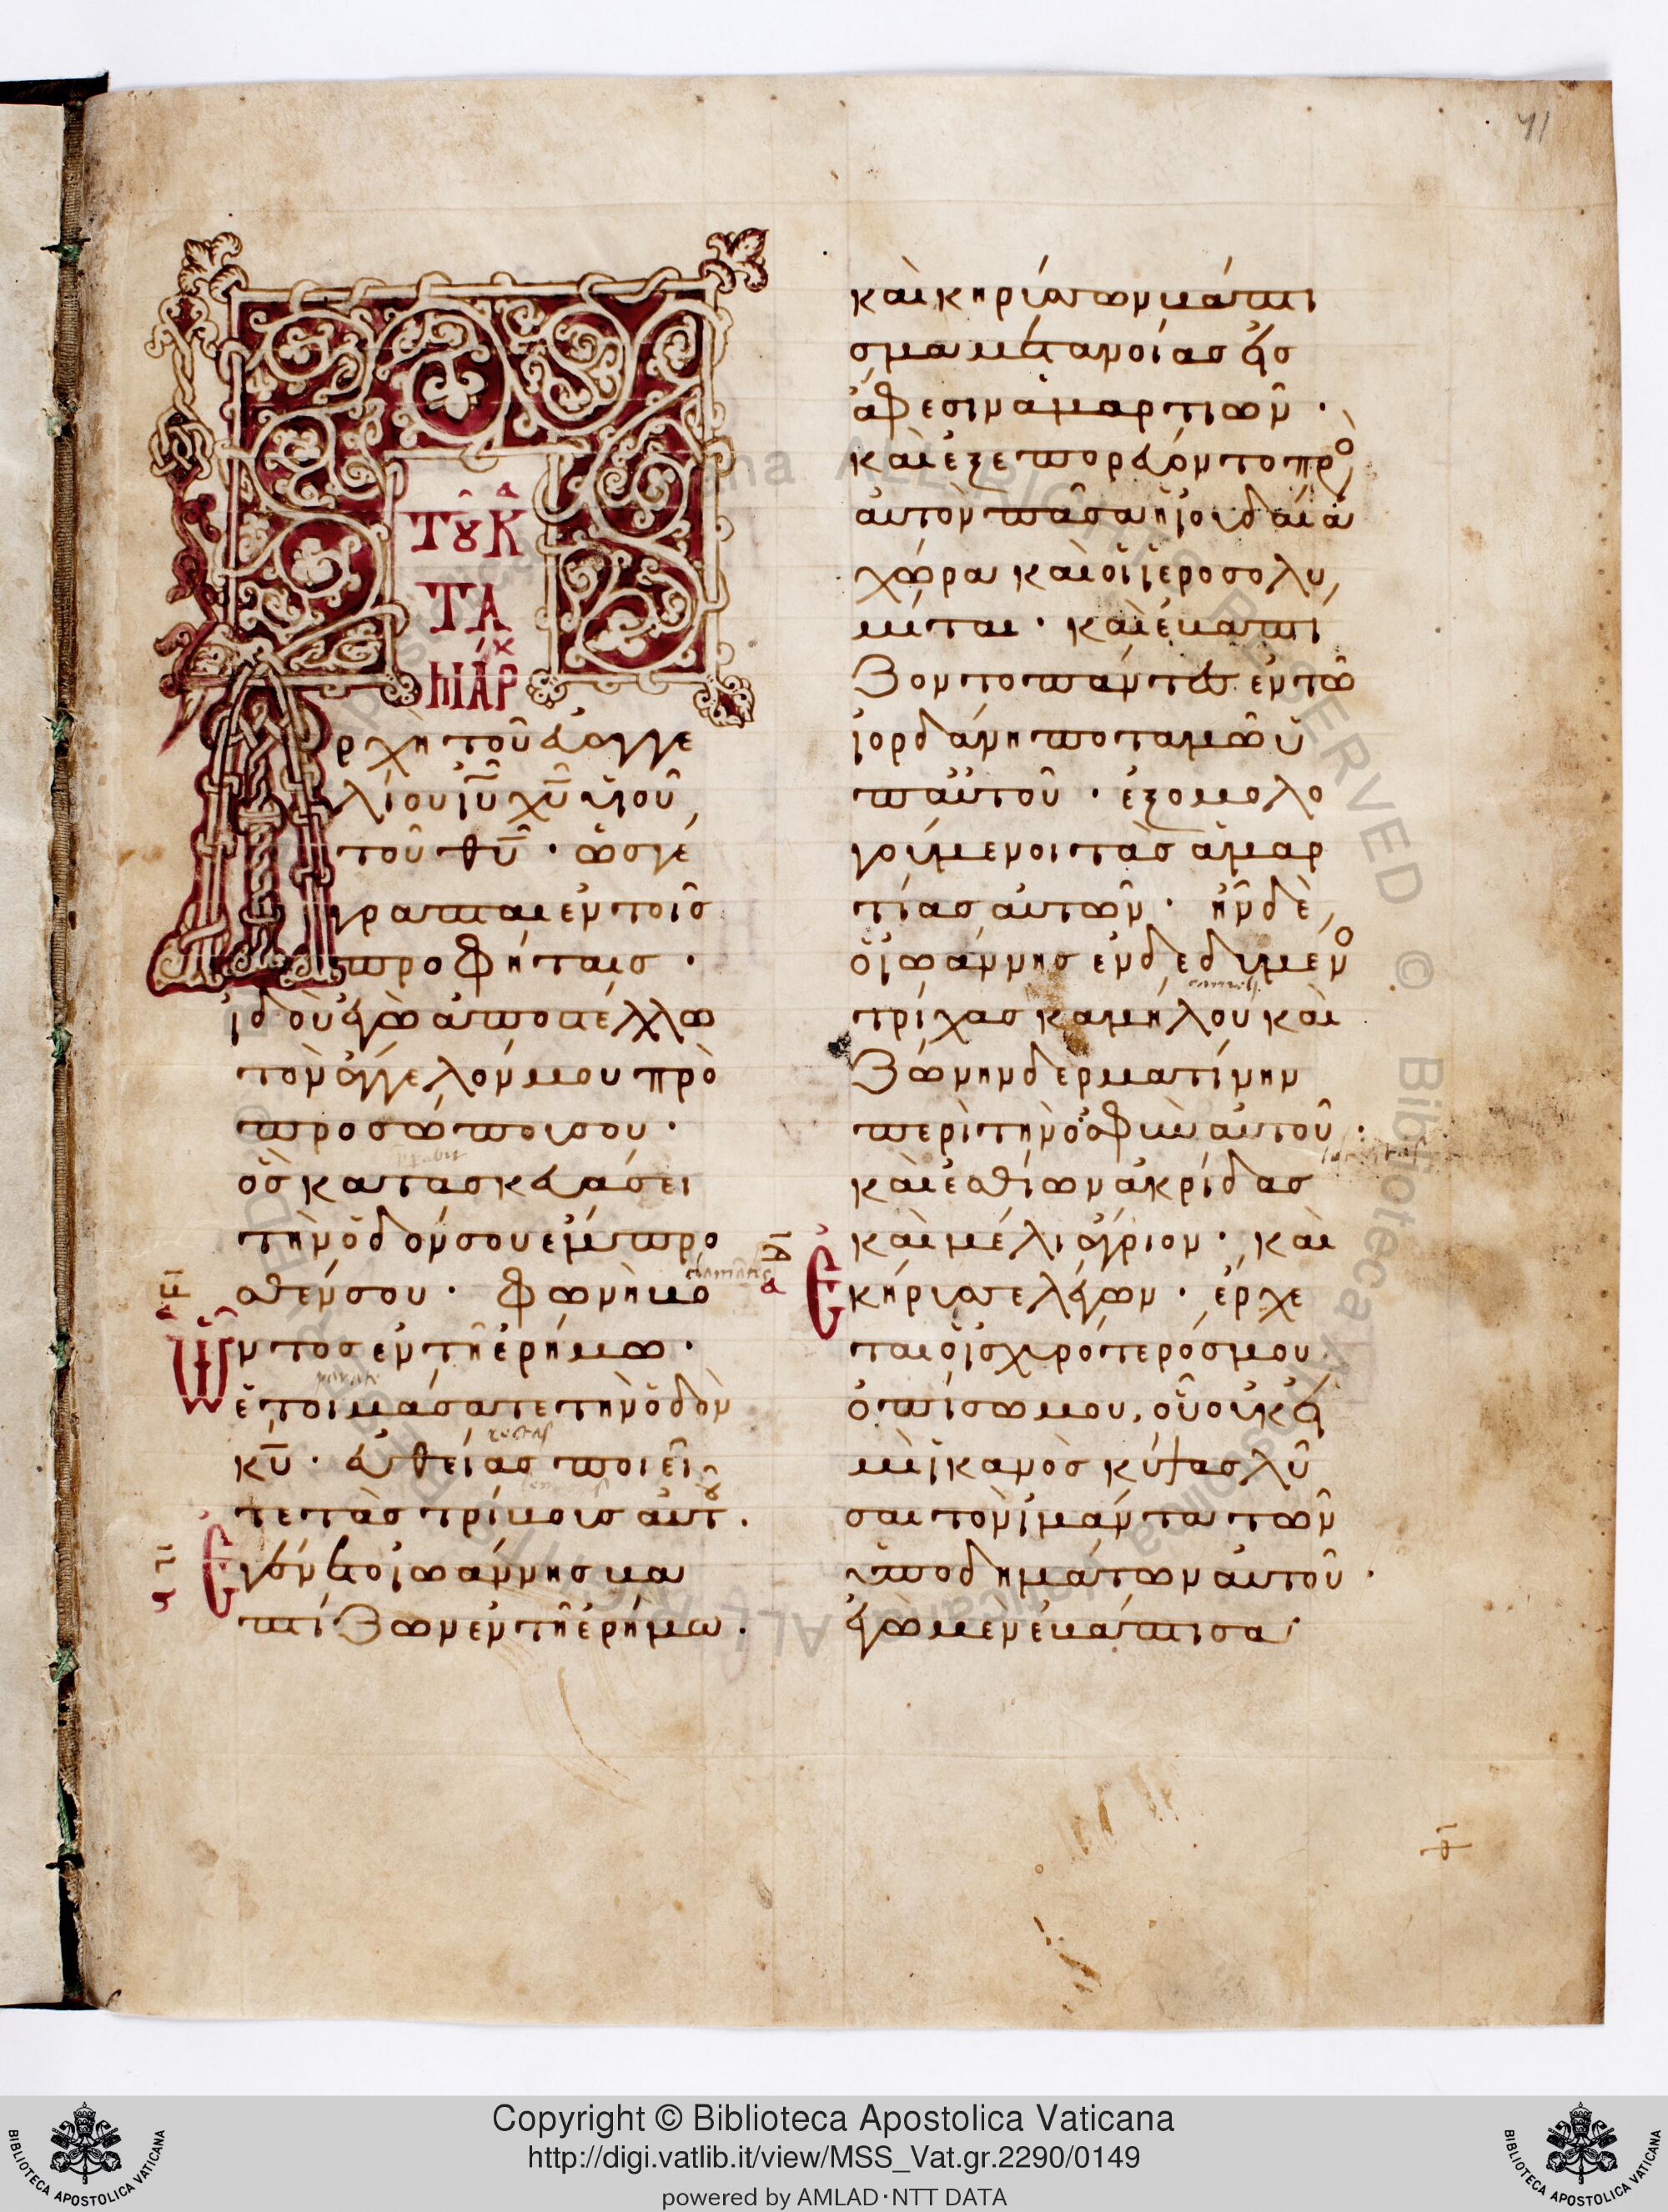 71
ΤȢ Κ
ΤΑ
ΜΑΡ
ρχὴ τοῦ εὐαγγε
λίου ἰῦ χῦ υἱοῦ
τοῦ θῦ · ὡσ γέ
γραπται ἐν τοῖσ
προφήταισ ·
ἰδοὺ ἐγὼ ἀποστέλλω
τὸν ἄγγελόν μου πρὸ
προσώπου σου ·
ὃσ κατασκευάσει
τὴν ὁδόν σου ἔμπρο
σθέν σου · φωνὴ βο
ῶντοσ ἐν τῆ ἐρήμω ·
ἑτοιμάσατε τὴν ὁδὸν
κῦ · εὐθείασ ποιεῖ
τε τὰσ τρίβουσ αὐτȢ̂ ·
Ἐγένετο ἰωάννησ βα
πτίζων ἐν τῆ ἐρήμω ·
καὶ κηρύσσων βάπτι
σμα μετανοίασ εἰσ
ἄφεσιν ἁμαρτιῶν ·
καὶ ἐξεπορεύοντο πρὸσ
αὐτὸν πᾶσα ἡ ἰουδαία
χώρα καὶ οἱ ἱεροσολυ
μίται · καὶ ἐβαπτί
ζοντο πάντεσ ἐν τῶ
ἰορδάνη ποταμῶ ὑ
π αὐτοῦ · ἐξομολο
γούμενοι τὰσ ἁμαρ
τίασ αὐτῶν · ἦν δὲ
ὁ ἰωάννησ ἐνδεδυμένοσ
τρίχασ καμήλου καὶ
ζώνην δερματίνην
περὶ τὴν ὀσφὺν αὐτοῦ ·
καὶ ἐσθίων ἀκρίδασ
καὶ μέλι ἄγριον · καὶ
Ἐκήρυσσε λέγων · ἔρχε
ται ὁ ἰσχυρότερόσ μου
ὀπίσω μου, οὗ οὐκ εἰ
μὶ ἱκανὸσ κύψασ λῦ
σαι τὸν ἱμάντα τῶν
ὑποδημάτων αὐτοῦ ·
ἐγὼ μὲν ἐβάπτισα
Copyright © Biblioteca Apostolica Vaticana
http://digi.vatlib.it/view/MSS_Vat.gr.2290/0149
powered by AMLAD·NTT DATA
BIBLIOTECA APOSTOLICA VATICANA
BIBLIOTECA APOSTOLICA VATICANA